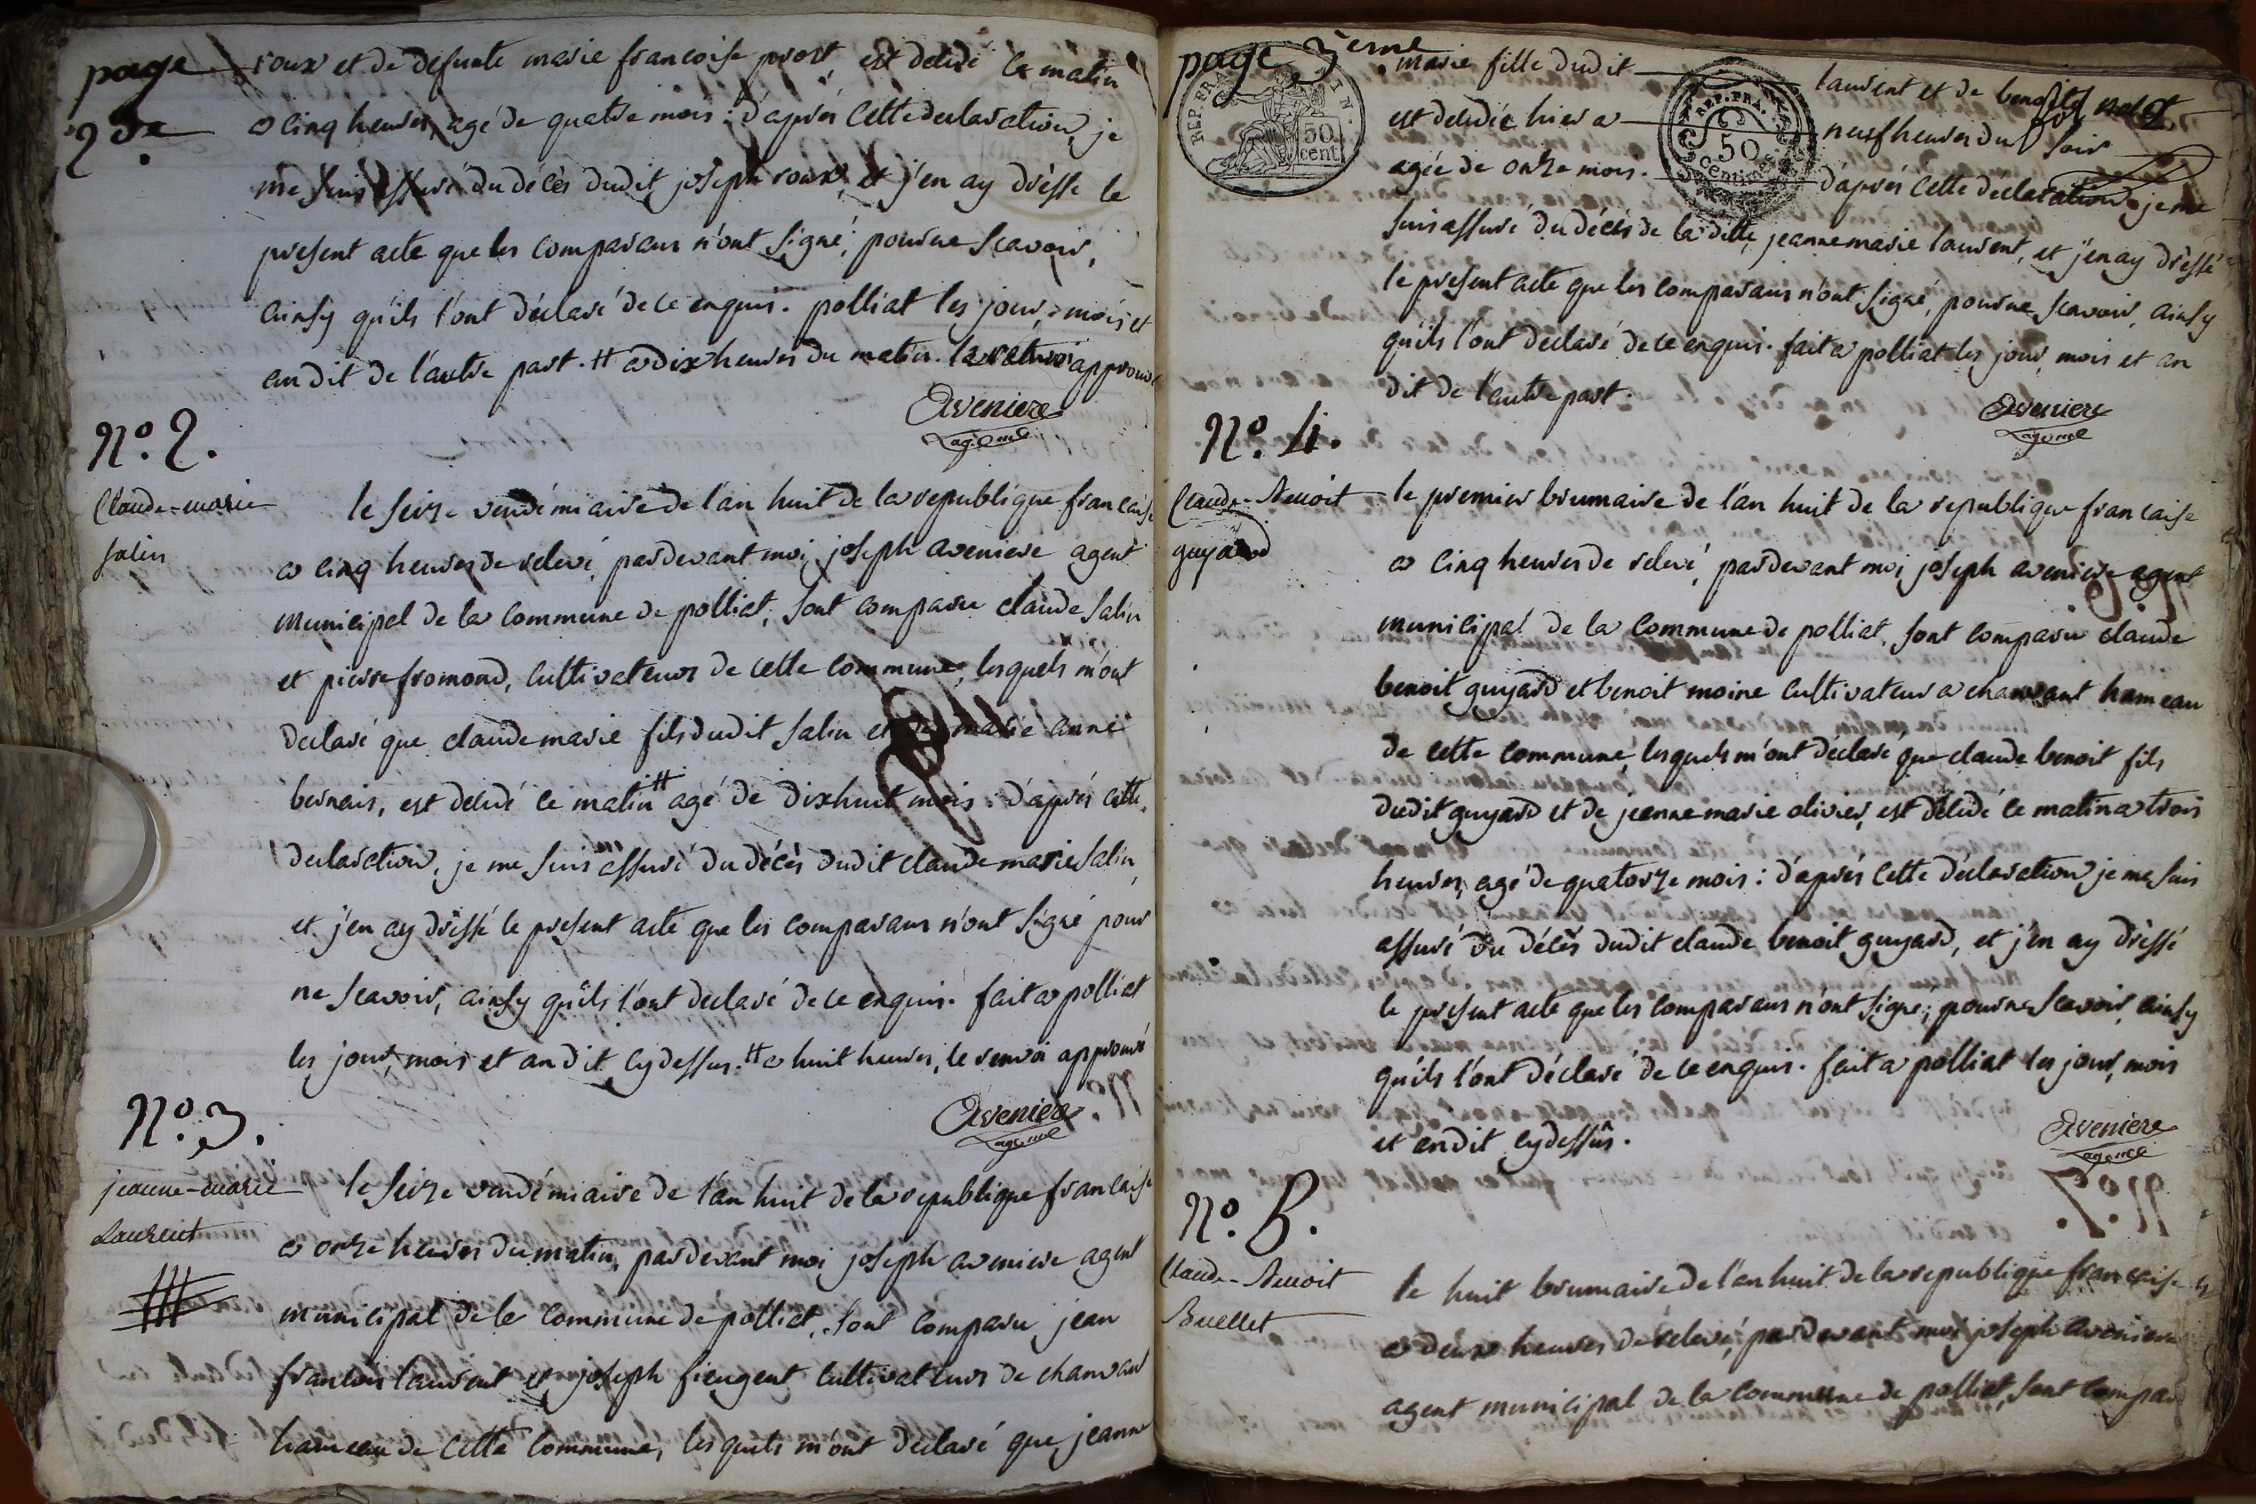 page
2de
roux et de defunte marie francoise prost est dekdé ce matin
a cinq heures, agé de quatre mois : d'aprés cette declaration, je
me suis assuré du décès dudit joseph roux, et j'en ay drèssé le
present acte que les comparans n'ont signé, pour ne scavoir,
ainsy qu'ils l'ont déclaré de ce enquis. polliat les jour, mois et
an dit de l'autre part. # a dix heures du matin. le renvoi approuvé
Aveniere
agent
N.o 2.
Claude-marie
salin
le seize vendémiaire de l'an huit de la republique francaise
a cinq heures de relevé, pardevant moi joseph aveniere agent
municipal de la commune de polliat, sont comparu claude salin
et pierre fromond, cultivateurs de cette commune, lesquels m'ont
declaré que claude marie fils dudit salin et de marie anne
bernais, est dekdé ce matin # agé de dixhuit mois : d'aprés cette
declaration, je me suis assuré du décès dudit claude marie salin,
et j'en ay drèssé le present acte que les comparans n'ont signé pour
ne scavoir, ainsy qu'ils l'ont declaré de ce enquis. fait a polliat
les jour, mois et an dit cy dessus. # a huit heures, le renvoi approuvé
Aveniere
agent
N.o 3.
jeanne-marie
Laurent
le seize vendémiaire de l'an huit de la republique francaise
a onze heures du matin, pardevant moi joseph aveniere agent
municipal de la commune de polliat, sont comparu jean
francois laurent et joseph fieugent cultivateurs de chanvant
hameau de cette commune, lesquels m'ont declaré que jeanne
page 3eme
REP. FRA.
50
cent.
REP. FRA.
50
Centimes
marie fille dudit laurent et de benoite nalet
est dekdée hier a neuf heures du soir
agée de onze mois. d'aprés cette déclaration, je me
suis assuré du décès de la ditte jeanne marie laurent, et j'en ay drèssé
le present acte que les comparans n'ont signé, pour ne scavoir, ainsy
qu'ils l'ont declaré de ce enquis. fait a polliat les jour, mois et an
dit de l'autre part.
Aveniere
agent
N.o 4.
Claude-Benoit
guyard
le premier brumaire de l'an huit de la republique francaise
a cinq heures de relevé, pardevant moi joseph aveniere agent
municipal de la commune de polliat, sont comparu claude
benoit guyard et benoit moine cultivateurs a chanvant hameau
de cette commune, lesquels m'ont déclaré que claude benoit fils
dudit guyard et de jeanne marie olivier, est dékdé ce matin a trois
heures, agé de quatorze mois : d'aprés cette déclaration je me suis
assuré du décès dudit claude benoit guyard, et j'en ay drèssé
le present acte que les comparans n'ont signé, pour ne scavoir, ainsy
qu'ils l'ont déclaré de ce enquis. fait a polliat les jour, mois
et an dit cy dessus.
Aveniere
agent
N.o 5.
Claude-Benoit
Buellet
le huit brumaire de l'an huit de la republique francaise
a deux heures de relevé, pardevant moi joseph aveniere
agent municipal de la commune de polliat, sont compar